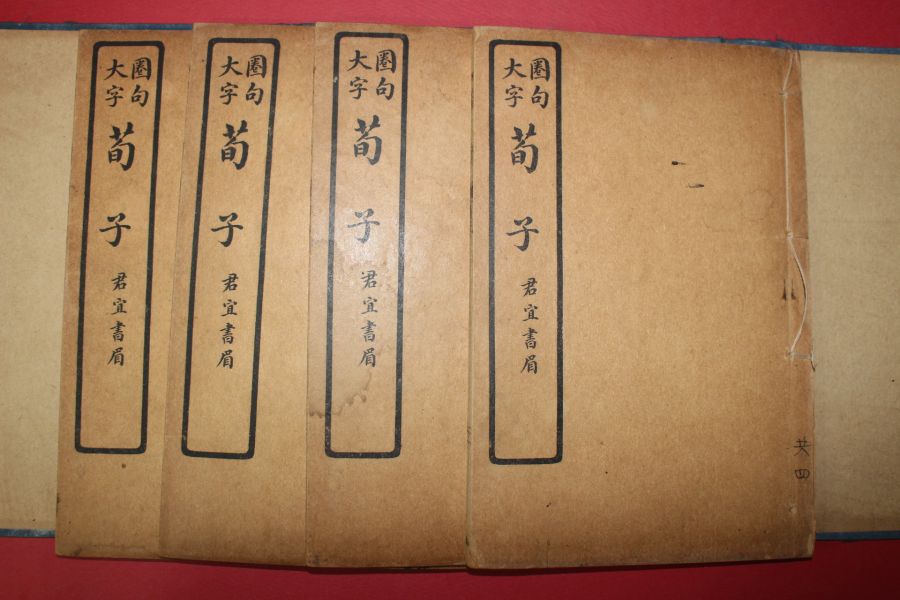 共四
圈句
大字
荀子
君宜書眉
圈句
大字
荀子
君宜書眉
圈句
大字
荀子
君宜書眉
圈句
大字
荀子
君宜書眉